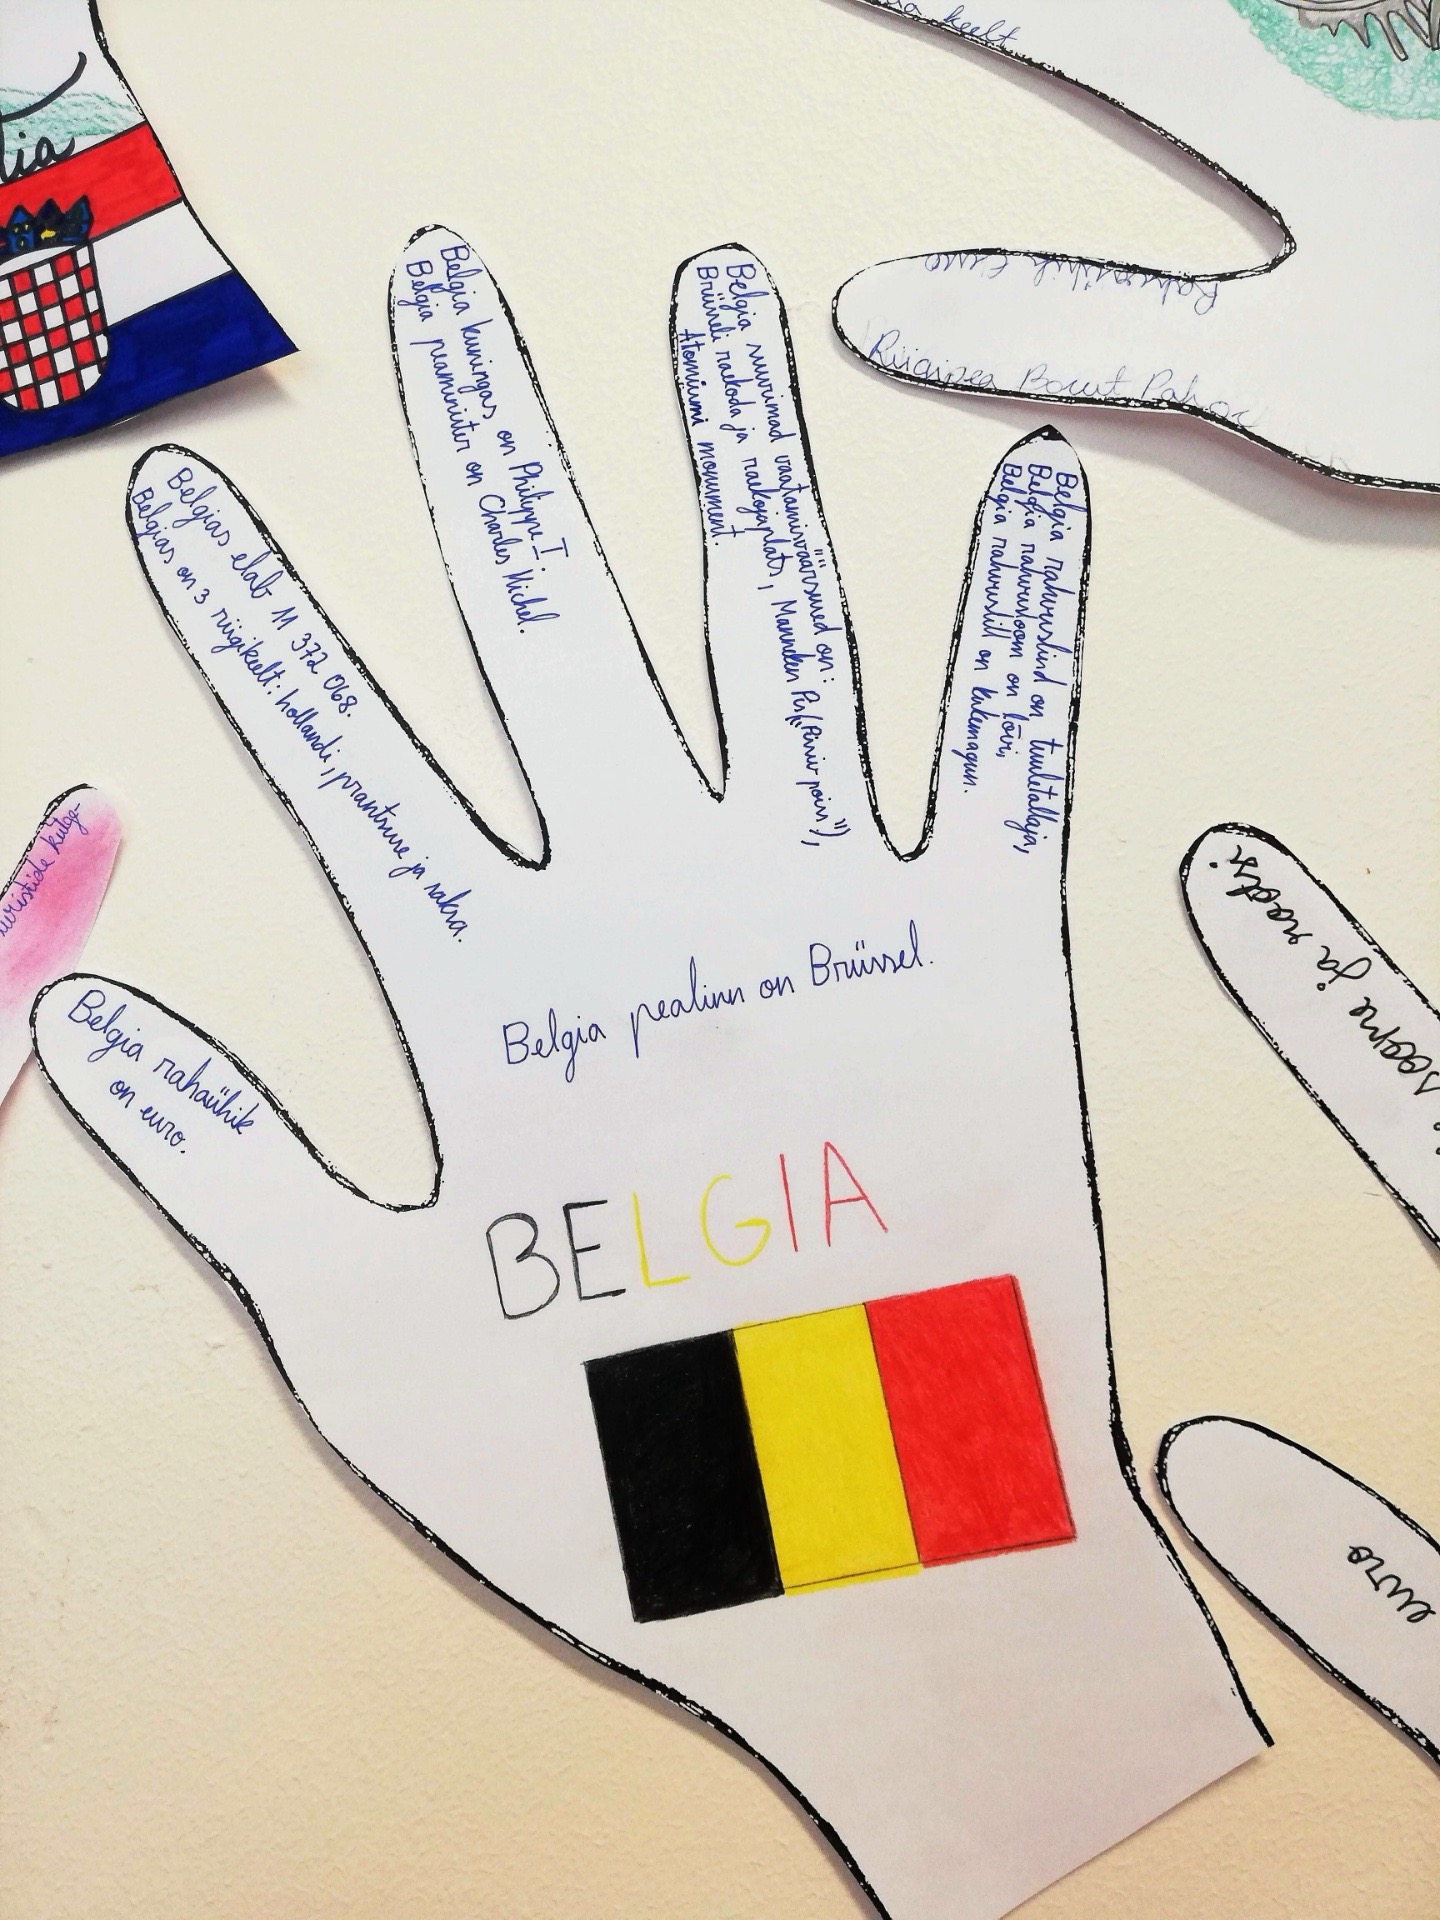 Belgia rahaühik
on euro.
Belgias elab 11 372 068.
Belgias on 3 riigikeelt: hollandi, prantsuse ja saksa.
Belgia kuningas on Philippe I.
Belgia peaminister on Charles Michel.
Belgia suurimad vaatamisväärsused on:
Brüsseli raekoda ja raekojaplats, Manneken Pis ("Pissiv poiss"),
Atomiumi monument.
Belgia rahvuslind on tuuletallaja,
Belgia rahvusloom on lõvi,
Belgia rahvuslill on kukemagun.
Belgia pealinn on Brüssel.
BELGIA
keelt
Rahaühik Euro
Riigipea Borut Pahor
tia
turistide külge-
soome ja rootsi
euro